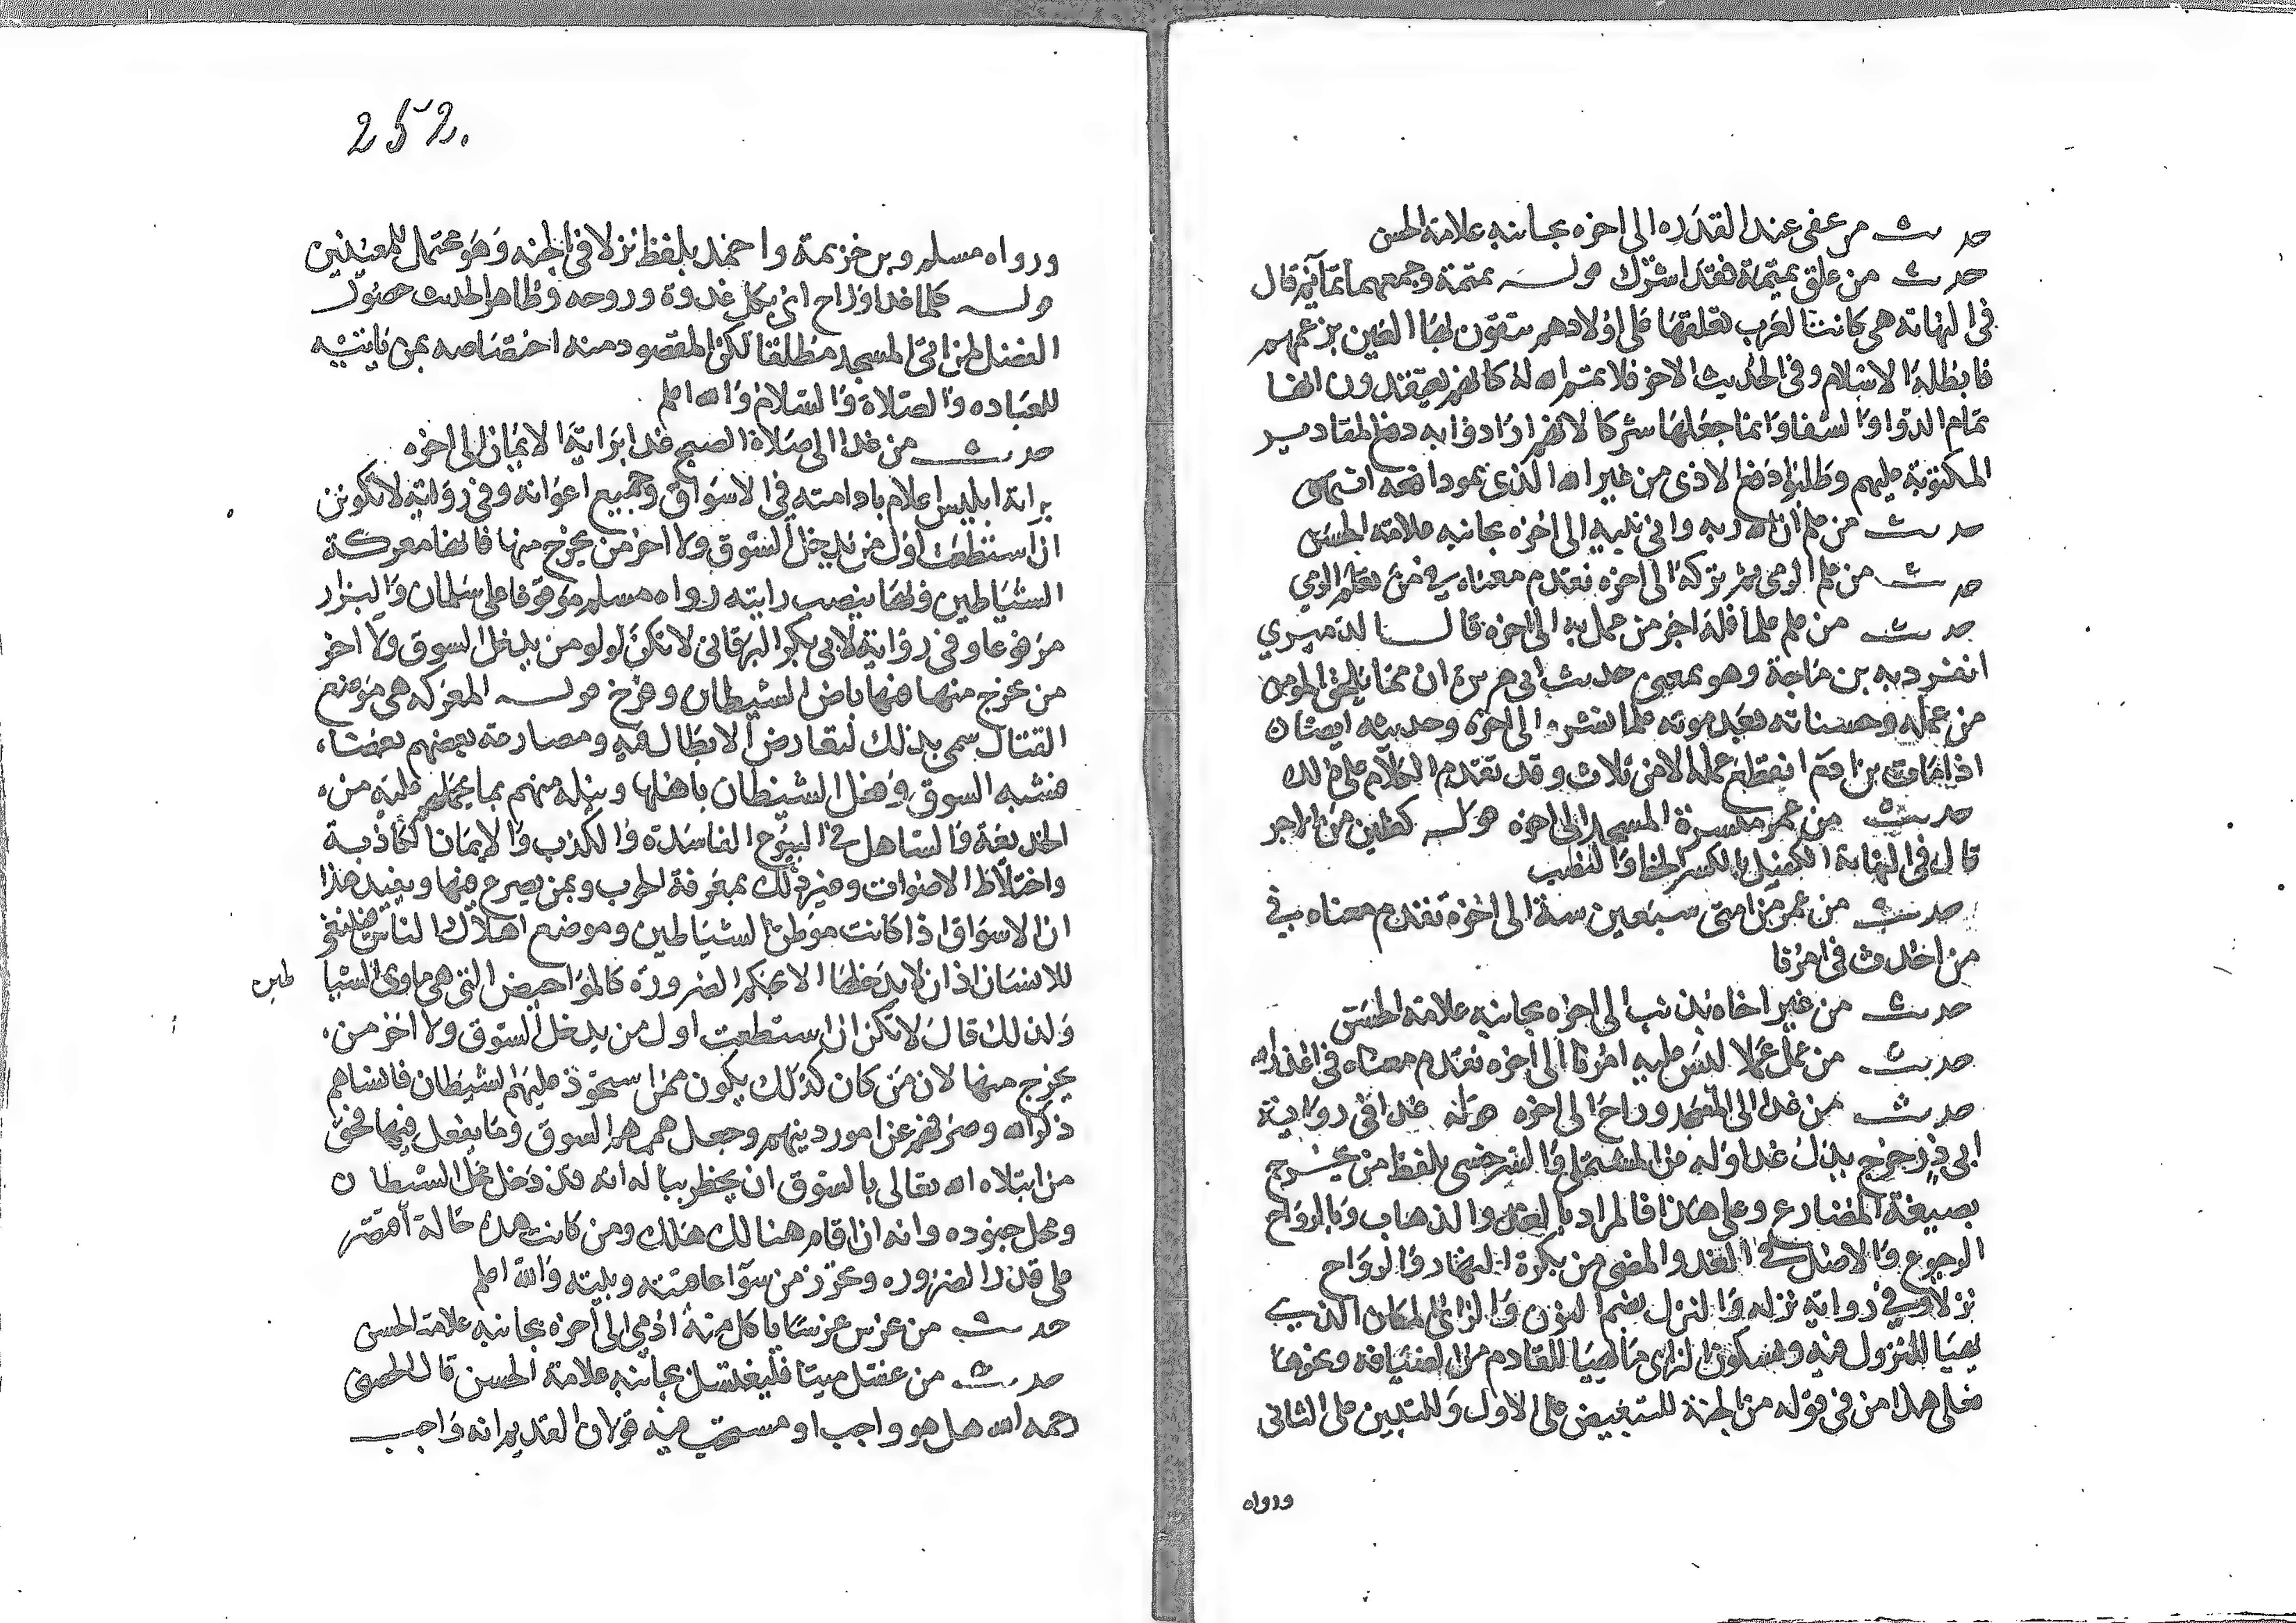 حديث من عفى عند القدره الى اخره بجانبه علامة الحسن
حديث من علق تميمة فقد اشرك قوله تميمة وجمعهما تمائم قال
فى النهاية هى كانت العرب تعلقها على اولادهم يتقون بها العين بزعمهم
فابطله الاسلام وفى الحديث الاخر فلا اتم الله له كانهم يعتقدون انها
تمام الدوا والشفا وانما جعلها شركا لانهم ارادوا به دفع المقادير
المكتوبة عليهم وطلبوا دفع الاذى من غير الله الذى هو دافعه انتهى
حديث من علم ان الله ربه وانى نبيه الى اخره بجانبه علامة الحسن
حديث من علم الرمى ثم تركه الى اخره تقدم معناه فى من تعلم الرمى
حديث من علم علما فله اجر من عمل به الى اخره قال الدميرى
انفرد به بن ماجة وهو بمعنى حديث ابى هريرة ان مما يلحق المومن
من عمله وحسناته بعد موته علما نشره الى اخره وحديثه ايضا ان
اذا مات بن ادم انقطع عمله الا من ثلاث وقد تقدم الكلام على ذلك
حديث من عمر ميسرة المسجد الى اخره قوله كفلين من الاجر
قال فى النهاية الكفل بالكسر الحظ والنصيب
حديث من عمر من امتى سبعين سنة الى اخره تقدم معناه فى
من احدث فى امرنا
حديث من عير اخاه بذنب الى اخره بجانبه علامة الحسن
حديث من عمل عملا ليس عليه امرنا الى اخره تقدم معناه فى
حديث من غدا الى المسجد وراح الى اخره قوله غدا فى رواية
ابى ذر خرج بدل غدا وله من المستملى والسرخسى بلفظ من يخرج
بصيغة المضارع وعلى هذا فالمراد بالغدو الذهاب وبالرواح
الرجوع والاصل فى الغدو المضى من بكرة النهار والرواح
نزلا وفى رواية نزله والنزل بضم النون والزاى المكان الذى
يهيا للنزول فيه وبسكون الزاى ما يهيا للقادم من الضيافة ونحوها
فعلى هذا من فى قوله من الجنة للتبعيض على الاول وللتبيين على الثانى
ورواه
252.
ورواه مسلم وبن خزيمة واحمد بلفظ نزلا فى الجنه وهو محتمل للمعنيين
قوله كلما غدا او راح اى بكل غدوة وروحه وظاهر الحديث حصول
الفضل لمن اتى المسجد مطلقا لكن المقصود منه اختصاصه بمن ياتيه
للعباده والصلاة والسلام والله اعلم
حديث من غدا الى صلاة الصبح غدا براية الايمان الى اخره
براية ابليس اعلام بادامته فى الاسواق وجميع اعوانه وفى رواية لا تكونن
ان استطعت اول من يدخل السوق ولا اخر من يخرج منها فانها معركة
الشياطين وفيها ينصب رايته رواه مسلم موقوفا على سلمان والبزار
مرفوعا وفى رواية لابى بكر البرقانى لا تكن اول من يدخل السوق ولا اخر
من يخرج منها فيها باض الشيطان وفرخ قوله المعركه هى موضع
القتال سمى بذلك لتعارض الابطال فيه ومصارعة بعضهم بعضا،
فشبه السوق وفعل الشيطان باهلها ونيله منهم بما يحملهم عليه من،
الخديعة والتساهل فى البيوع الفاسدة والكذب والايمان الكاذبة
واختلاط الاصوات وغير ذلك بمعركة الحرب وبمن يصرع فيها ويفيد هذا
ان الاسواق اذا كانت موطن الشياطين وموضع اهلاك الناس فينبغى
للانسان اذا ان لا يدخلها الا بحكم الضرورة كالمواحيض التى هى ماوى الشيا طين
ولذلك قال لا تكن ان استطعت اول من يدخل السوق ولا اخر من،
يخرج منها لان من كان كذلك يكون ممن استحوذ عليهم الشيطان فانساهم
ذكر الله وصرفهم عن امور دينهم وجعل همهم السوق وما يفعل فيها فحق
من ابتلاه الله تعالى بالسوق ان يخطر بباله انه قد دخل محل الشيطان
ومحل جنوده وانه ان اقام هنالك هلك ومن كانت هذه حاله اقتصر
على قدر الضروره وتحرز من سوء عاقبته وبليته والله اعلم
حديث من غرس غرسا ياكل منه ادمى الى اخره بجانبه علامة الحسن
حديث من غسل ميتا فليغتسل بجانبه علامة الحسن قال الحصنى
رحمه الله هل هو واجب او مستحب فيه قولان القديم انه واجب